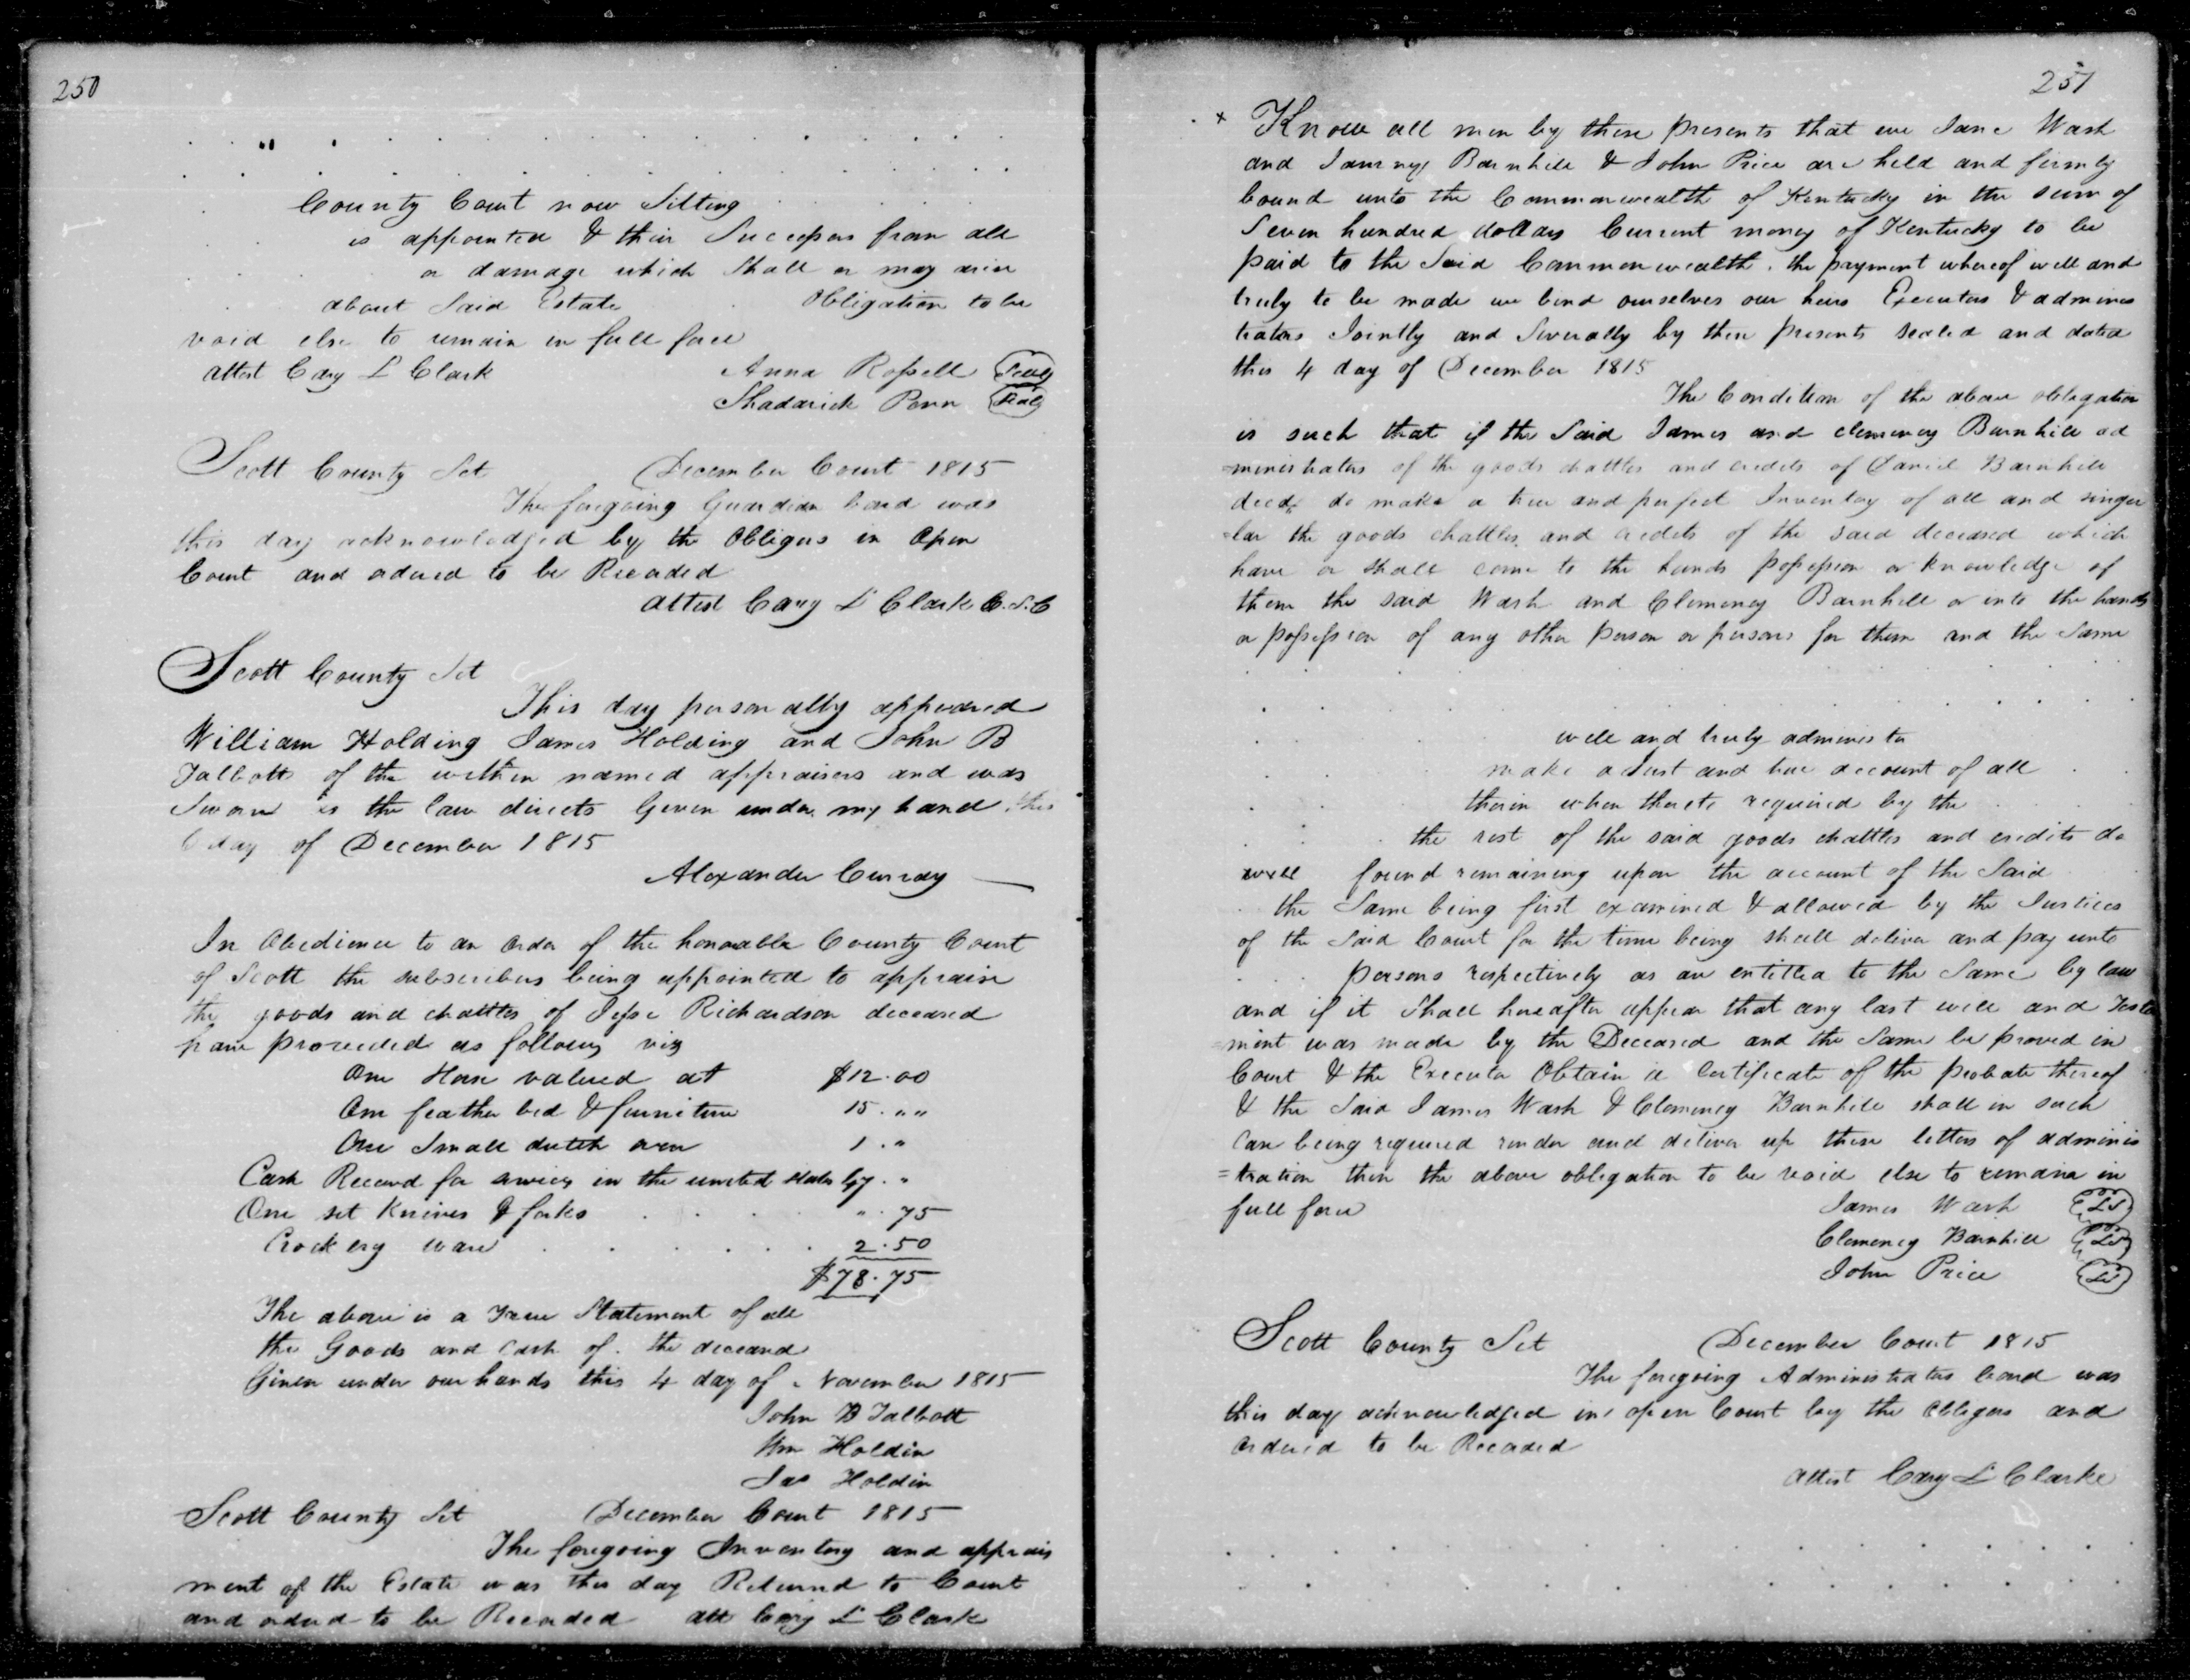 250
County Court now Sitting
is appointed & their Successors from all
or damage which Shall or may arise
about Said Estate Obligation to be
void else to remain in full force
Attest Cary L Clark Anna Rossell Seal
Shadarick Penn Seal
Scott County Sct December Court 1815
The foregoing Guardian bond was
this day acknowledged by the Obligors in Open
Court and ordered to be Recorded
Attest Cary L Clark C.S.C
Scott County Sct
This day personally appeared
William Holding James Holding and John B
Talbott of the within named appraisers and was
Sworn as the law directs Given under my hand this
day of December 1815
Alexander Curray
In Obedience to an order of the honorable County Court
of Scott the subscribers being appointed to appraise
the goods and chattles of Jesse Richardson deceased
have proceeded as follows viz
One Horse valued at $12.00
One feather bed & furniture 15. " "
One Small dutch oven 1. "
Cash Receivd for services in the united states 47. "
One set Knives & forks " . 75
Crockery ware 2.50
$78.75
The above is a True Statement of all
the Goods and Cash of the deceased
Given under our hands this 4 day of November 1815
John B Talbott
Wm Holdin
Jas Holdin
Scott County Sct December Court 1815
The foregoing Inventory and apprais
ment of the Estate was this day Returnd to Court
and orderd to be Recorded att Cary L Clark
251
x Know all men by these presents that we Jane Wash
and Barnhill & John Price are held and firmly
bound unto the Commonwealth of Kentucky in the sum of
Seven hundred dollars Current money of Kentucky to be
paid to the Said Commonwealth. the payment whereof well and
truly to be made we bind ourselves our heirs Executors & adminis
trators Jointly and Severally by these presents sealed and dated
this 4 day of December 1815
The Condition of the above obligation
is such that if the Said James and clemency Barnhill ad
=ministrators of the goods chattles and credits of Daniel Barnhill
decd. do make a true and perfect Inventory of all and singu
=lar the goods chattles and credits of the said deceased which
have or shall come to the hands possession or knowledge of
them the said Wash and Clemency Barnhill or into the hands
or possession of any other person or persons for them and the Same
well and truly administer
make a Just and true account of all
therein when thereto required by the
the rest of the said goods chattles and credits do
well found remaining upon the account of the Said
the Same being first examined & allowed by the Justices
of the Said Court for the time being shall deliver and pay unto
persons respectively as are entitled to the Same by law
and if it Shall hereafter appear that any last will and Testa
=ment was made by the Deceased and the Same be proved in
Court & the Executor Obtain a Certificate of the probate thereof
& the Said James Wash & Clemency Barnhill shall in such
Case being required render and deliver up these letters of adminis
=tration then the above obligation to be void else to remain in
full force James Wash LS
Clemency Barnhill LS
John Price LS
Scott County Sct December Court 1815
The foregoing Administrators bond was
this day acknowledged in open Court by the Obligors and
Ordered to be Recorded
Attest Cary L Clarke